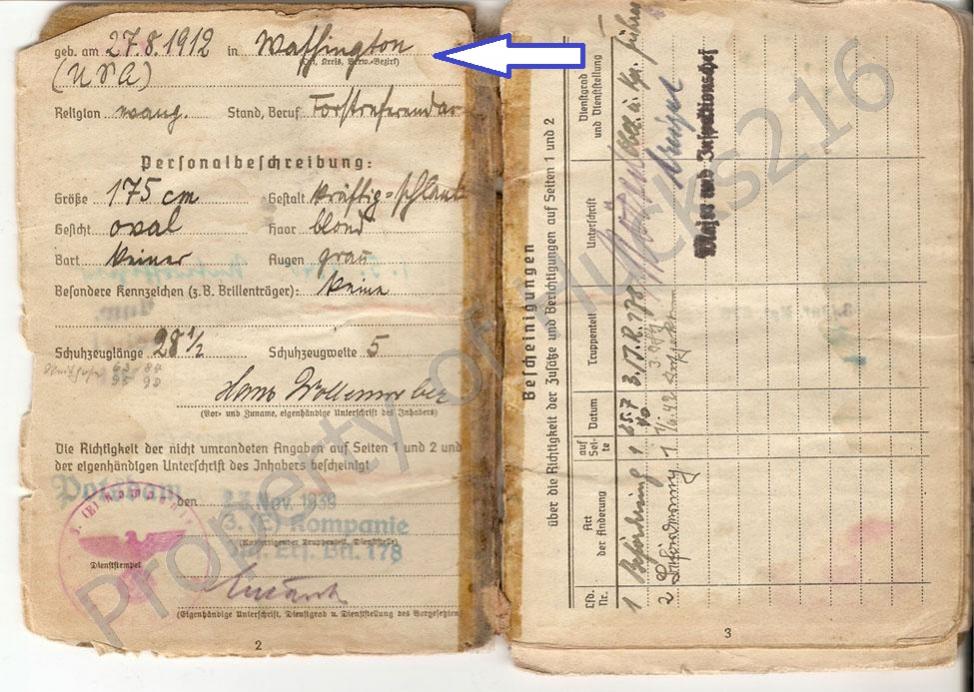 geb. am 27.8.1912 in Waſhington
(Ort, Kreis, Verw.-Bezirk)
(USA)
Religion evang. Stand, Beruf Forſtreferendar
Perſonalbeſchreibung:
Größe 175 cm Geſtalt kräftig-ſchlank
Geſicht oval Haar blond
Bart keiner Augen grau
Beſondere Kennzeichen (z. B. Brillenträger): keine
Schuhzeuglänge 28 1/2 Schuhzeugweite 5
Hans
(Vor- und Zuname, eigenhändige Unterſchrift des Inhabers)
Die Richtigkeit der nicht umrandeten Angaben auf Seiten 1 und 2 und
der eigenhändigen Unterſchrift des Inhabers beſcheinigt
Potsdam, den Nov. 1939
3. (E) Kompanie
Btl. 178
Dienſtſtempel
(Eigenhändige Unterſchrift, Dienſtgrad u. Dienſtſtellung des Vorgeſetzten)
2
Beſcheinigungen
über die Richtigkeit der Zuſätze und Berichtigungen auf Seiten 1 und 2
Lfd. Nr. Art der Änderung auf Seite Datum Truppenteil Unterſchrift Dienſtgrad und Dienſtſtellung
1 Beförderung 1 3./I.R. 178
2 1
Major und Inſpektionschef
3
Property of Hucks216